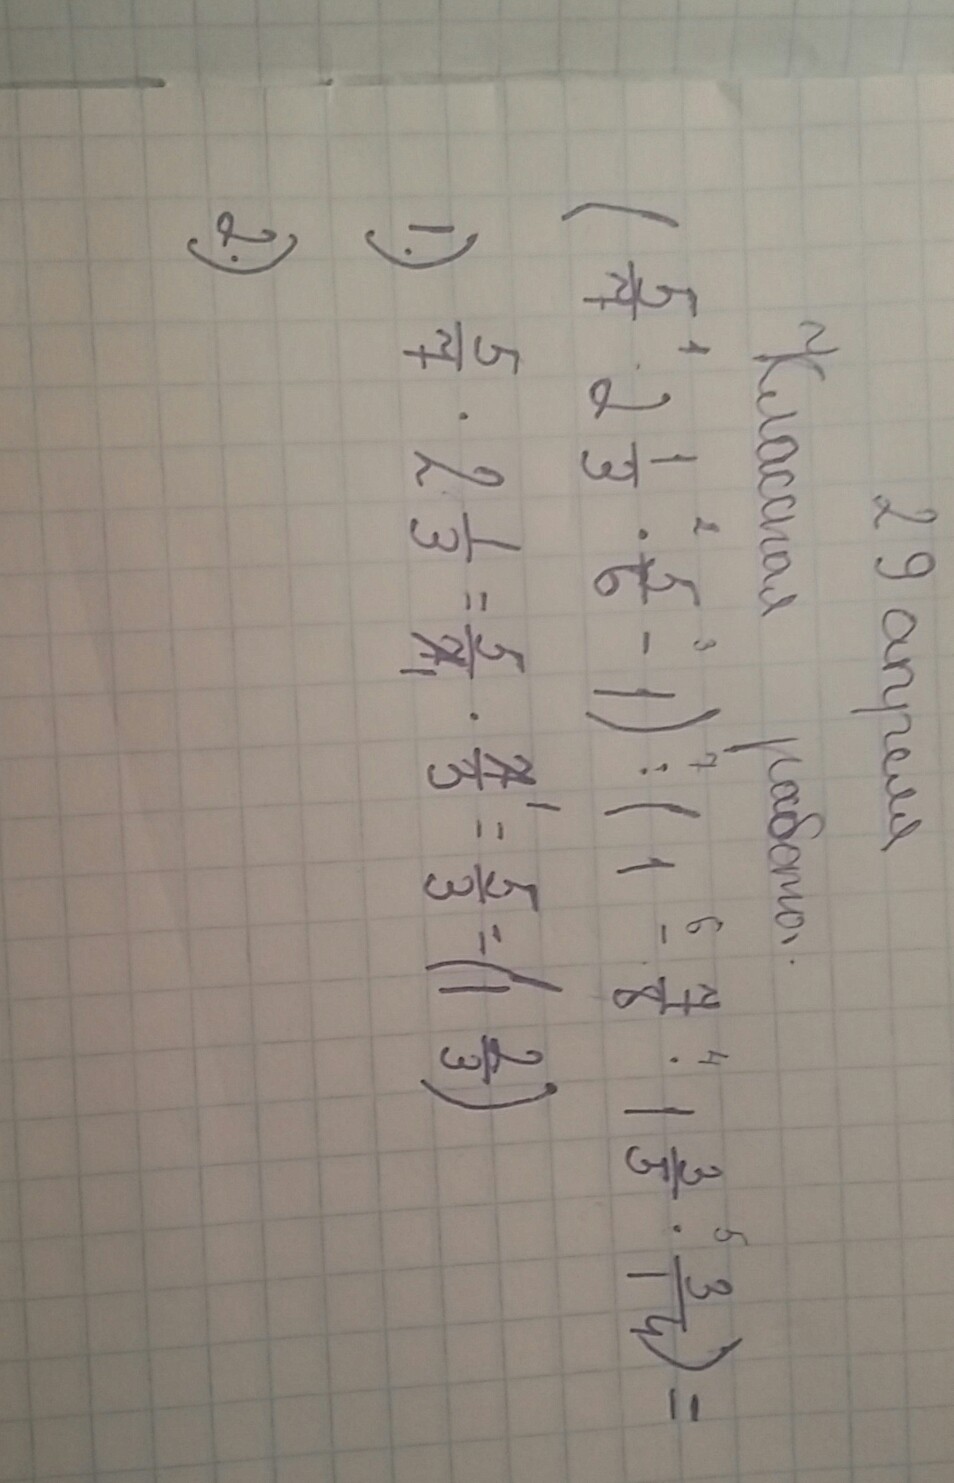 29 апреля
Классная работа.
(5/7 ·¹ 2 1/3 ·² 5/6 -³ 1) :⁷ (1 -⁶ 7/8 ·⁴ 1 3/5 ·⁵ 3/14) =
1.) 5/7 · 2 1/3 = 5/7 1 · 7 1/3 = 5/3 = (1 2/3)
2.)